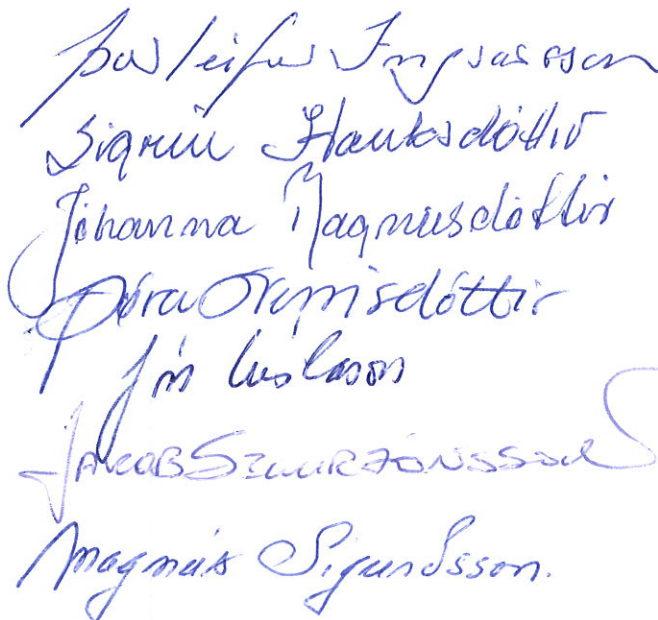 Þorleifur Ingvarsson
Sigrún Hauksdóttir
Jóhanna Magnúsdóttir
Þóra Sverrisdóttir
Jón Gíslason
Jakob Sigurjónsson
Magnús Sigurðsson.